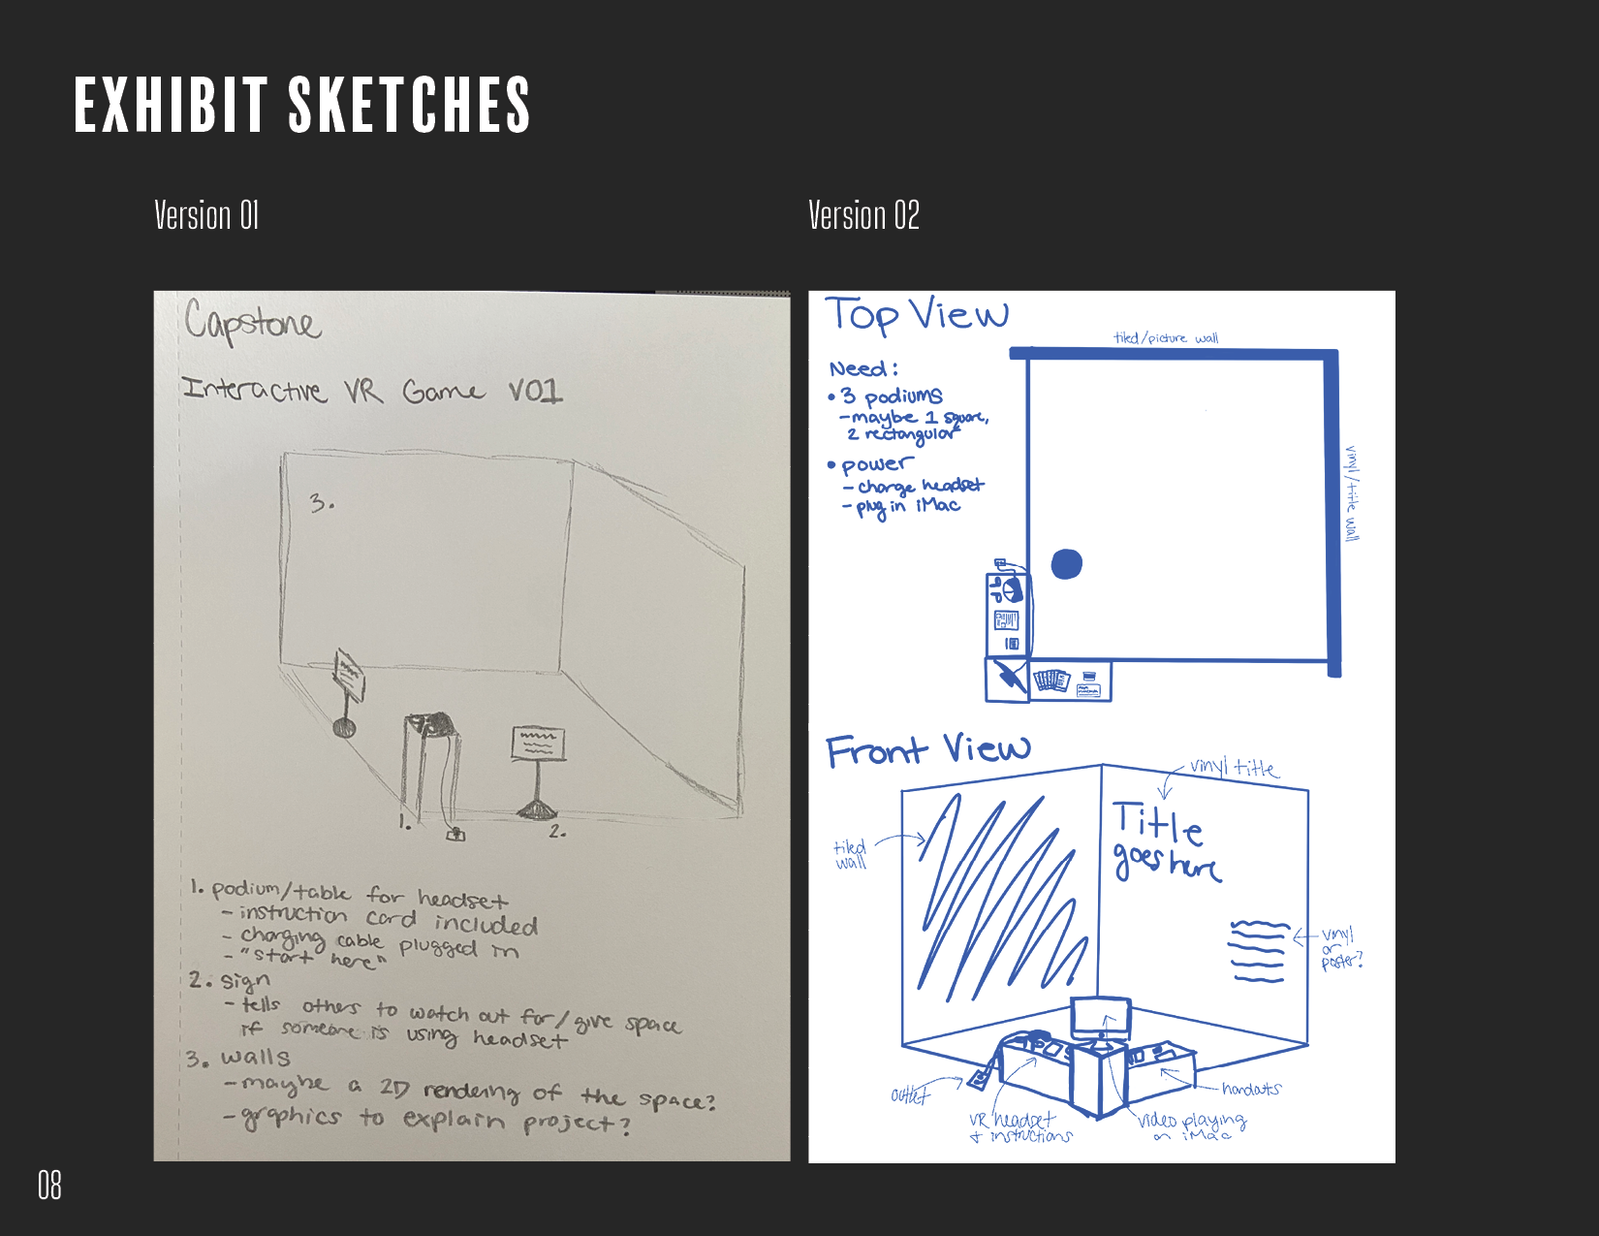 EXHIBIT SKETCHES
Version 01
Capstone
Interactive VR Game V01
3.
1.
2.
1. podium/table for headset
- instruction card included
- charging cable plugged in
- "start here"
2. sign
- tells others to watch out for/give space
if someone is using headset
3. walls
- maybe a 2D rendering of the space?
- graphics to explain project?
Version 02
Top View
tiled/picture wall
Need:
• 3 podiums
- maybe 1 square,
2 rectangular
• power
- charge headset
- plug in iMac
vinyl/title wall
Front View
vinyl title
Title
goes here
tiled
wall
vinyl
or
poster?
outlet
VR headset
+ instructions
video playing
on iMac
handouts
08